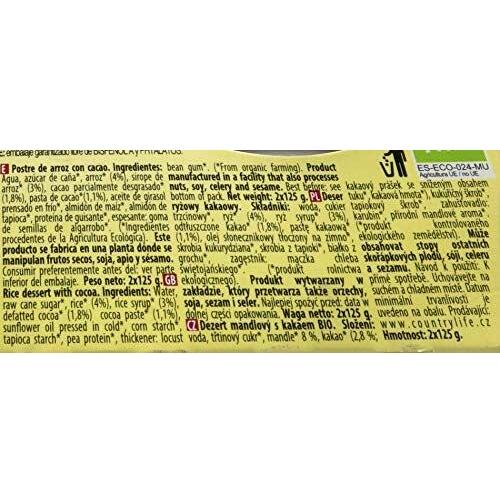 E: embalaje garantizado libre de BISFENOL A y FTALATOS.
E Postre de arroz con cacao. Ingredientes:
Agua, azúcar de caña*, arroz* (4%), sirope de
arroz* (3%), cacao parcialmente desgrasado*
(1,8%), pasta de cacao*(1,1%), aceite de girasol
prensado en frío*, almidón de maíz*, almidón de
tapioca*, proteína de guisante*, espesante: goma
de semillas de algarrobo*. (*Ingredientes
procedentes de la Agricultura Ecológica). Este
producto se fabrica en una planta dónde se
manipulan frutos secos, soja, apio y sésamo.
Consumir preferentemente antes del: ver parte
inferior del embalaje. Peso neto: 2x125 g. GB
Rice dessert with cocoa. Ingredients: Water,
raw cane sugar*, rice* (4%), rice syrup* (3%),
defatted cocoa* (1,8%), cocoa paste* (1,1%),
sunflower oil pressed in cold*, corn starch*,
tapioca starch*, pea protein*, thickener: locust
bean gum*. (*From organic farming). Product
manufactured in a facility that also processes
nuts, soy, celery and sesame. Best before: see
bottom of pack. Net weight: 2x125 g. PL Deser
ryżowy kakaowy. Składniki: woda, cukier
trzcinowy*, ryż* (4%), syrop ryżowy* (3%),
odtłuszczone kakao* (1,8%), paste kakaowa*
(1,1%), olej słonecznikowy tłoczony na zimno*,
skrobia kukurydziana*, skrobia z tapioki*, białko z
grochu*, zagęstnik: mączka chleba
świętojańskiego*. (*produkt rolnictwa
ekologicznego). Produkt wytwarzany w
zakładzie, który przetwarza także orzechy,
soja, sezam i seler. Najlepiej spożyć przed: data w
dolnej części opakowania. Waga netto: 2x125 g.
CZ Dezert mandlový s kakaem BIO. Složení:
voda, třtinový cukr*, mandle* 8 %, kakao* (2,8 %;
kakaový prášek se sníženým obsahem
tuku*, kakaová hmota*), zahušťovadlo:
kukuřičný škrob*, tapiokový škrob*,
karubin*, přírodní mandlové aroma*.
(*produkt kontrolovaného
ekologického zemědělství). Může
obsahovat stopy ostatních
skořápkových plodů, sóji, celeru
a sezamu. Návod k použití: K
přímé spotřebě. Uchovávejte v
chladu a suchu. Datum
minimální trvanlivosti je
uvedeno na obalu. Prodávající:
www.countrylife.cz.
Hmotnost: 2x125 g.
ES-ECO-024-MU
Agricultura UE / no UE